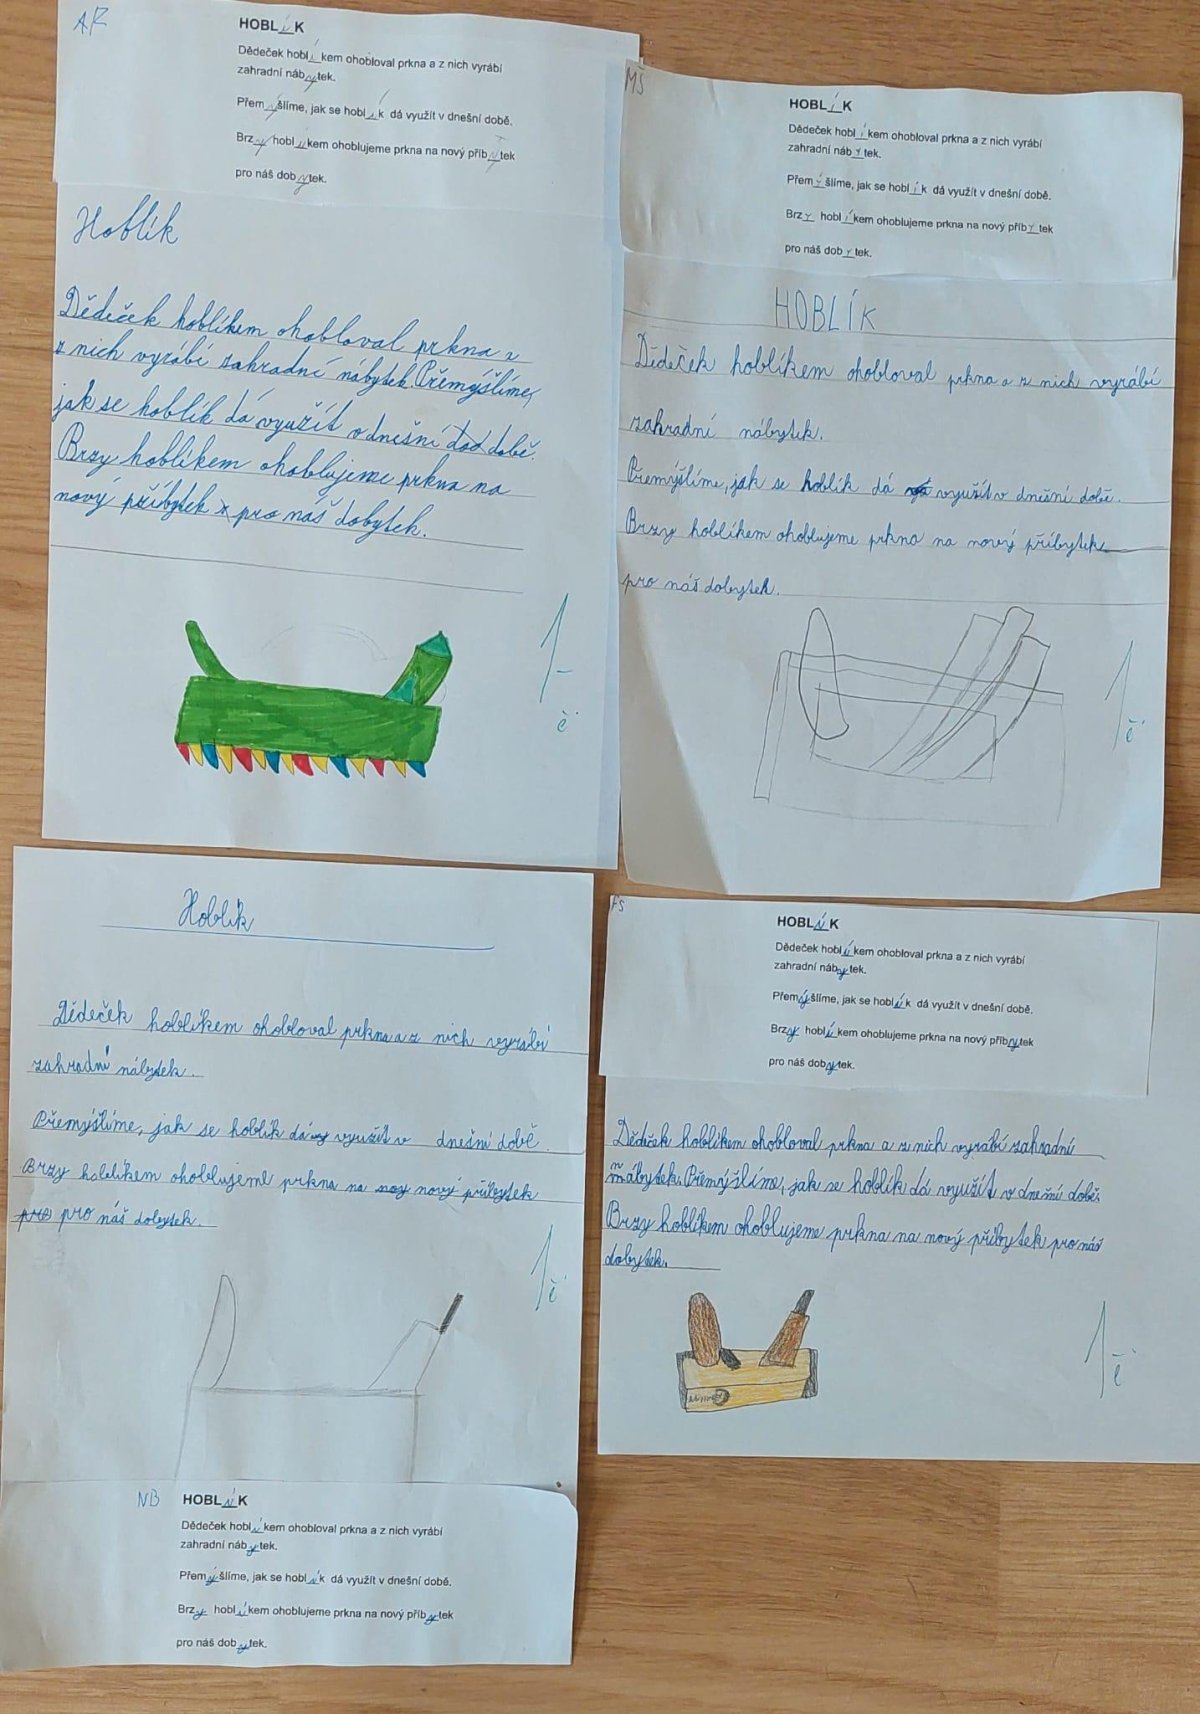 AR
HOBLÍK
Dědeček hoblíkem ohobloval prkna a z nich vyrábí
zahradní nábytek.
Přemýšlíme, jak se hoblík dá využít v dnešní době.
Brzy hoblíkem ohoblujeme prkna na nový příbytek
pro náš dobytek.
Hoblík
Dědeček hoblíkem ohobloval prkna z
z nich vyrábí zahradní nábytek. Přemýšlíme,
jak se hoblík dá využít v dnešní době.
Brzy hoblíkem ohoblujeme prkna na
nový příbytek pro náš dobytek.
1-
č
MŠ
HOBLÍK
Dědeček hoblíkem ohobloval prkna a z nich vyrábí
zahradní nábytek.
Přemýšlíme, jak se hoblík dá využít v dnešní době.
Brzy hoblíkem ohoblujeme prkna na nový příbytek
pro náš dobytek.
HOBLÍK
Dědeček hoblíkem ohobloval prkna a z nich vyrábí
zahradní nábytek.
Přemýšlíme, jak se hoblík dá využít v dnešní době.
Brzy hoblíkem ohoblujeme prkna na nový příbytek
pro náš dobytek.
1
č
Hoblík
Dědeček hoblíkem ohobloval prkna a z nich vyrábí
zahradní nábytek.
Přemýšlíme, jak se hoblík dá využít v dnešní době.
Brzy hoblíkem ohoblujeme prkna na nový příbytek
pro náš dobytek.
1
č
NB
HOBLÍK
Dědeček hoblíkem ohobloval prkna a z nich vyrábí
zahradní nábytek.
Přemýšlíme, jak se hoblík dá využít v dnešní době.
Brzy hoblíkem ohoblujeme prkna na nový příbytek
pro náš dobytek.
FS
HOBLÍK
Dědeček hoblíkem ohobloval prkna a z nich vyrábí
zahradní nábytek.
Přemýšlíme, jak se hoblík dá využít v dnešní době.
Brzy hoblíkem ohoblujeme prkna na nový příbytek
pro náš dobytek.
Dědeček hoblíkem ohobloval prkna a z nich vyrábí zahradní
nábytek. Přemýšlíme, jak se hoblík dá využít v dnešní době.
Brzy hoblíkem ohoblujeme prkna na nový příbytek pro náš
dobytek.
1
č